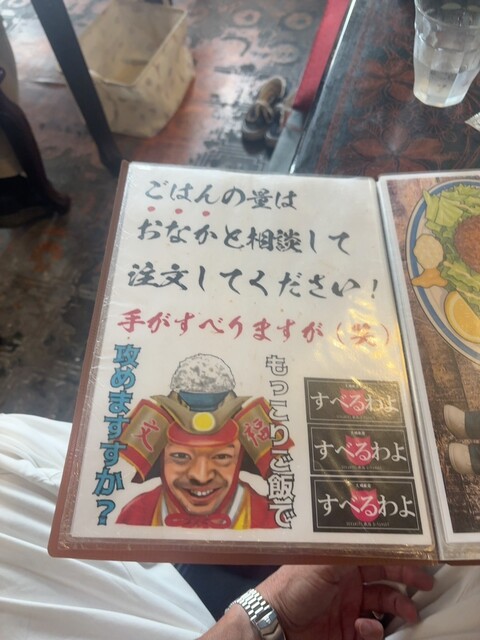 ごはんの量は
おなかと相談して
注文してください!
手がすべりますが(笑)
もっこりご飯で
攻めますすか?
すべるわよ
すべるわよ
すべるわよ